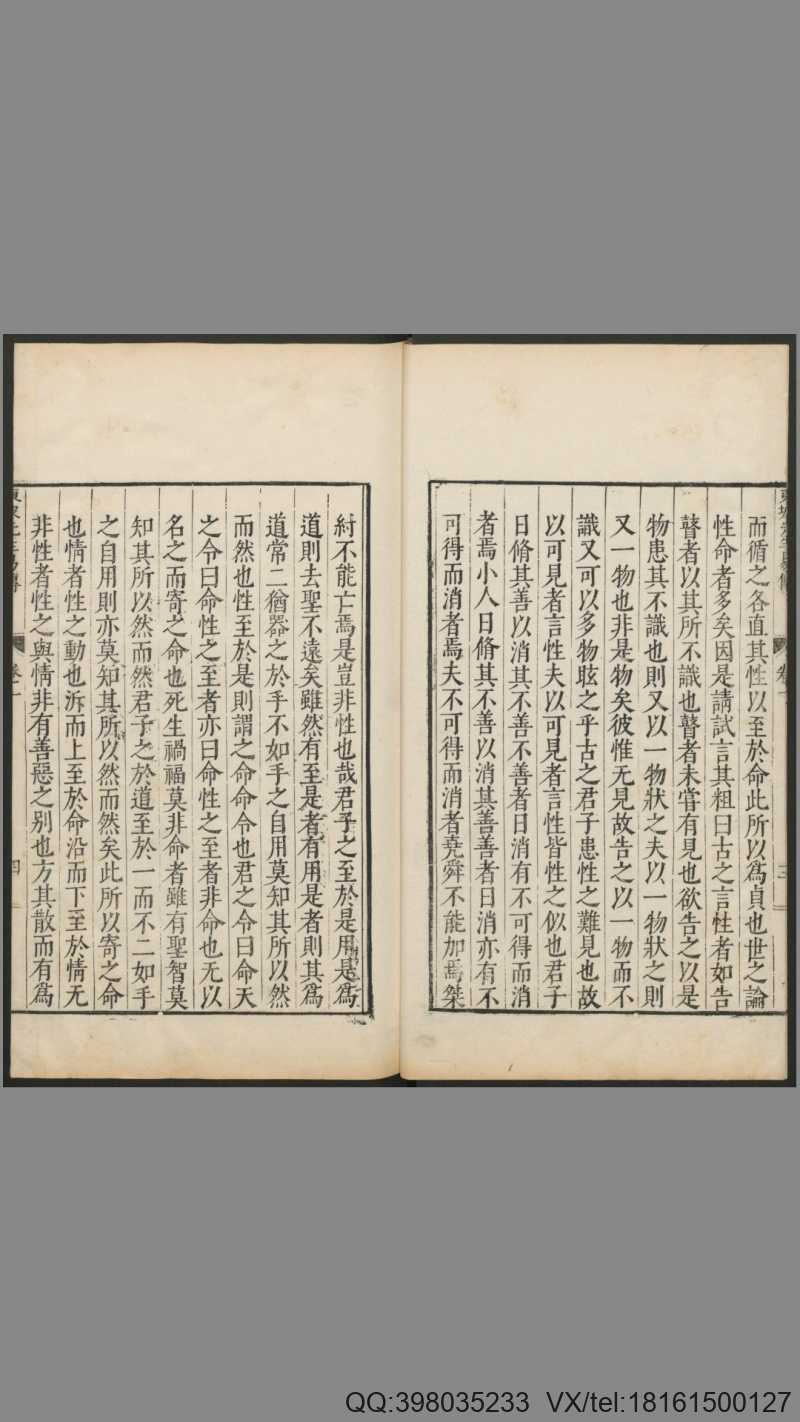 東坡先生易傳 卷一 三
而循之各直其性以至於命此所以爲貞也世之論
性命者多矣因是請試言其粗曰古之言性者如告
瞽者以其所不識也瞽者未嘗有見也欲告之以是
物患其不識也則又以一物狀之夫以一物狀之則
又一物也非是物矣彼惟无見故告之以一物而不
識又可以多物眩之乎古之君子患性之難見也故
以可見者言性夫以可見者言性皆性之似也君子
日脩其善以消其不善不善者日消有不可得而消
者焉小人日脩其不善以消其善善者日消亦有不
可得而消者焉夫不可得而消者堯舜不能加焉桀
紂不能亡焉是豈非性也哉君子之至於是用是爲
道則去聖不遠矣雖然有至是者有用是者則其爲
道常二猶器之於手不如手之自用莫知其所以然
而然也性至於是則謂之命命令也君之令曰命天
之令曰命性之至者亦曰命性之至者非命也无以
名之而寄之命也死生禍福莫非命者雖有聖智莫
知其所以然而然君子之於道至於一而不二如手
之自用則亦莫知其所以然而然矣此所以寄之命
也情者性之動也泝而上至於命沿而下至於情无
非性者性之與情非有善惡之别也方其散而有爲
東坡先生易傳 卷一 四
QQ:398035233 VX/tel:18161500127